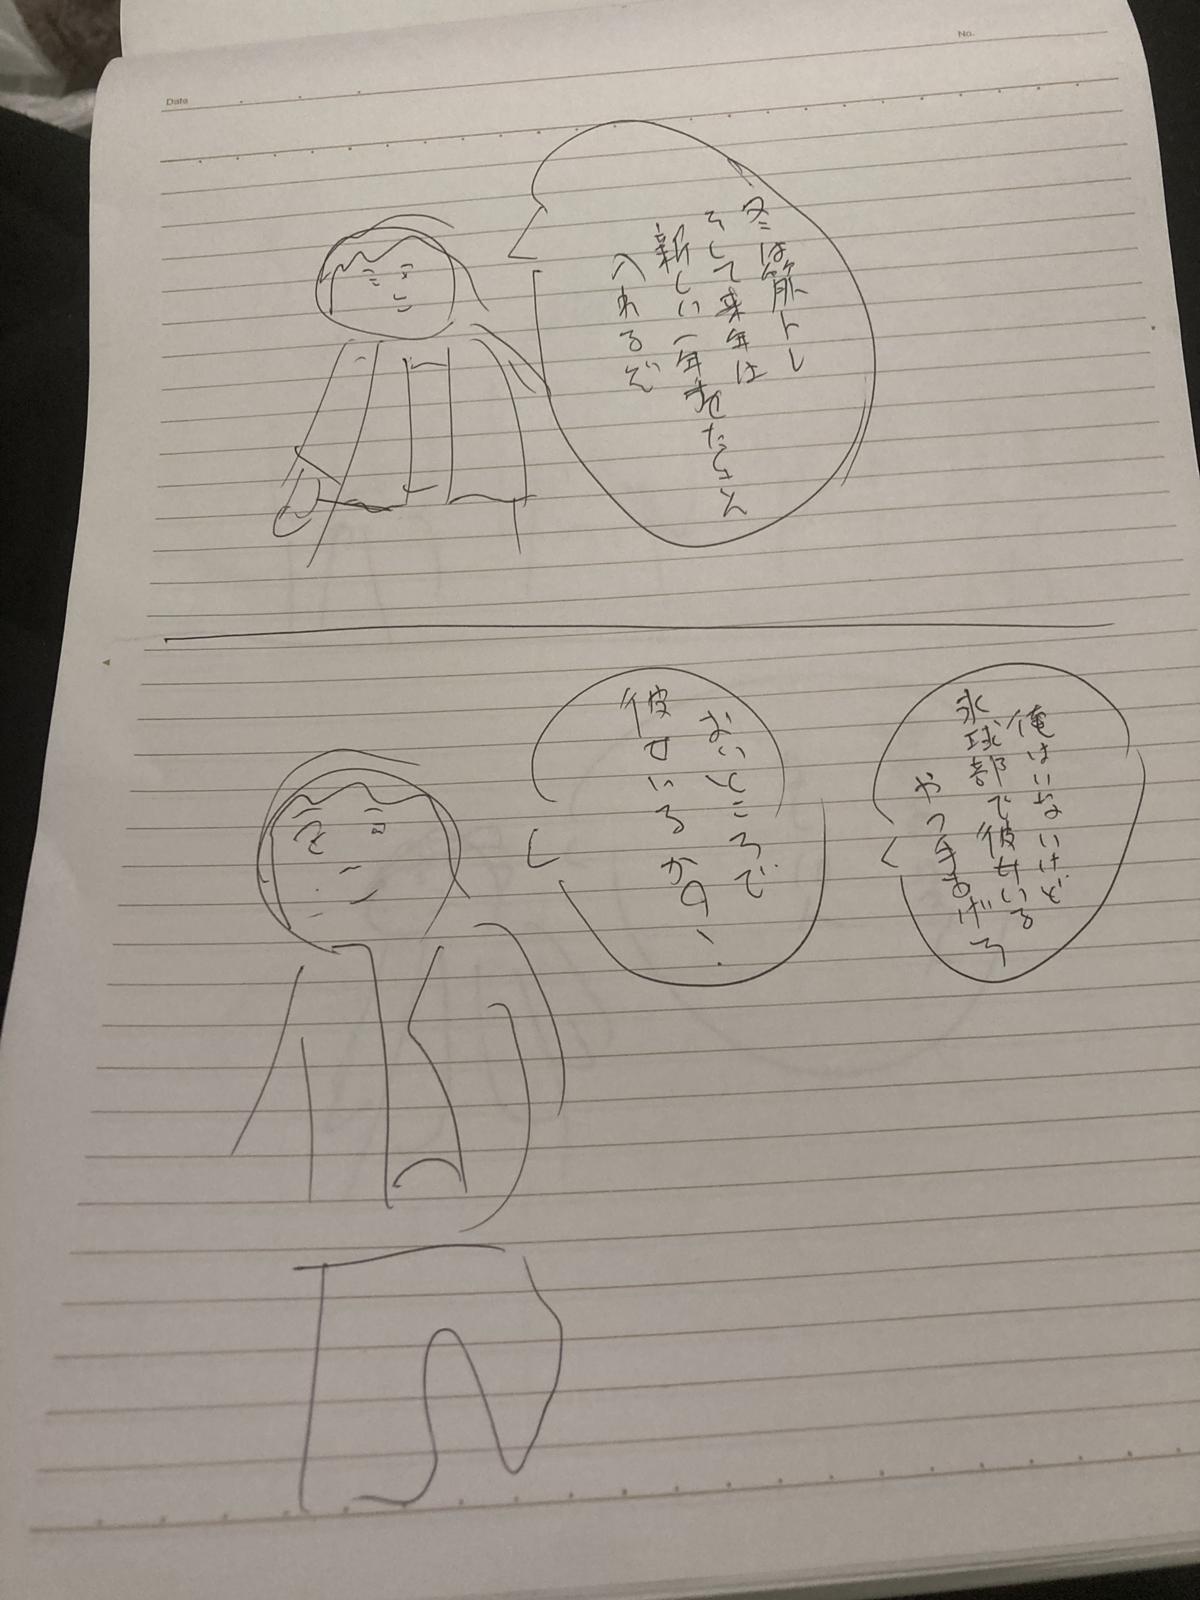 Date
No.
冬は筋トレ
そして来年は
新しい一年
入れるぞ
俺はいないけど
氷球部で彼女いる
やつ手あげろ
おいところで
彼女いるか